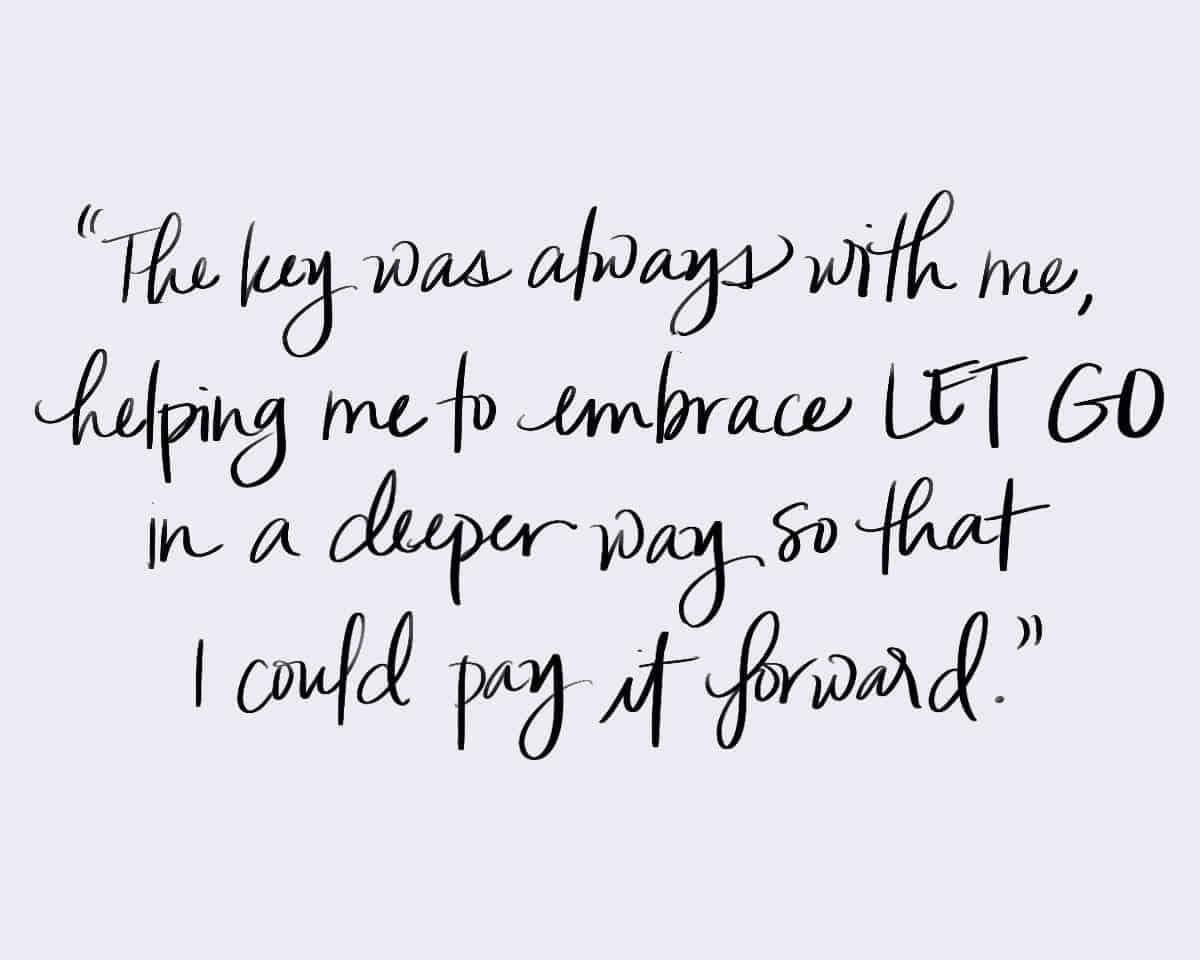 “The key was always with me,
helping me to embrace LET GO
in a deeper way so that
I could pay it forward.”